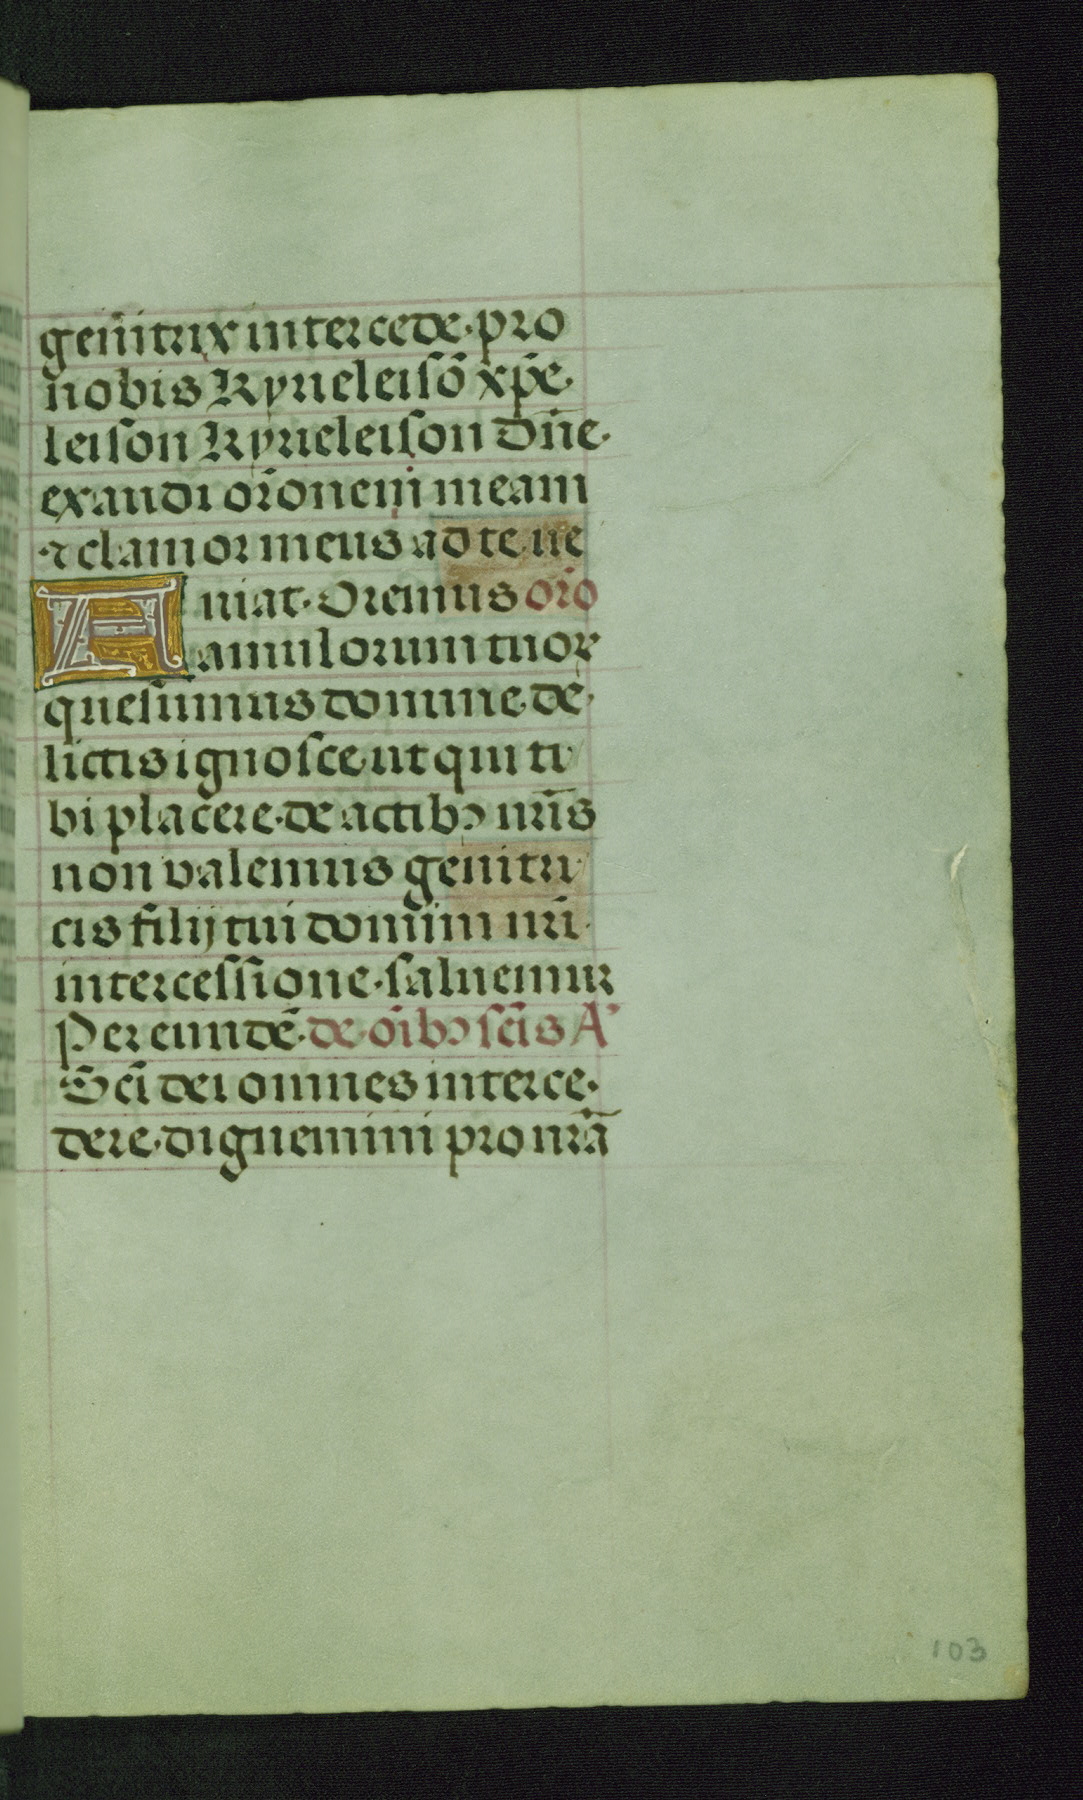 genitrix intercede pro
nobis Kyrieleisō xp̄e
leison Kyrieleison Dn̄e
exaudi or̄onem meam
⁊ clamor meus ad te ue
niat. Oremus or̄o
A amulorum tuoꝝ
quesumus domine de
lictis ignosce ut qui ti
bi placere de actibꝰ nr̄is
non valemus genitri
cis filij tui domini nr̄i
intercessione saluemur
Per eundē. de oībꝰ scīs A'
Scī dei omnes interce
dere dignemini pro nr̄ā
103